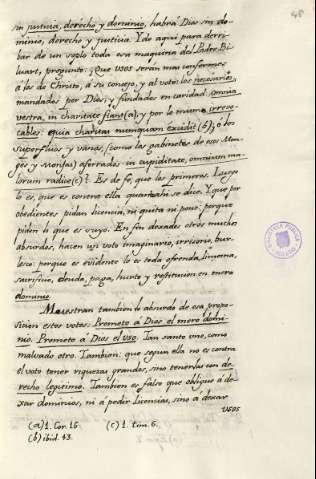 48
sin justicia, derecho y dominio, habrá Dias sin do-
minio, derecho y justicia. Y de aqui para derri-
bar de un soplo toda esa maquina del Padre Bi-
luart, pregunto: ¿Que usos serán mas conformes
á los de Christo, á su consejo, y al voto: los necesarios,
mandados por Dios, y fundados en caridad: Omnia
vestra, in charitate fiant (a), y por lo mismo irrevo-
cables: quia charitas numquam excidit (b), ó los
superfluos y vanos, (como los gabinetes de esos Mon-
ges y Monjas) aferrados in cupiditate, omnium ma-
lorum radice (c)? Es de fe, que los primeros. Luego
lo es, que es contra ella quanto ahi se dice. Y que por
obedientes pidan licencia, ni quita ni pone; porque
piden lo que es suyo. En fin dexados otros muchos
absurdos, hacen un voto imaginario, irrisorio, bur-
lesco: porque es evidente lo es toda ofrenda, limosna,
sacrificio, deuda, paga, hurto y restitucion en mero
dominio.
Muestran tambien lo absurdo de esa propo-
sicion estos votos: Prometo á Dios el mero domi-
nio. Prometo á Dios el uso. Tan santo uno, como
malvado otro. Tambien: que segun ella no es contra
el voto tener riquezas grandes, sino tenerlas con de-
recho legitimo. Tambien es falso que obligue á de-
xar dominios, ni á pedir licencias, sino á dexar
usos
(a) 1. Cor. 16. (c) 1. Tim. 6.
(b) ibid. 13.